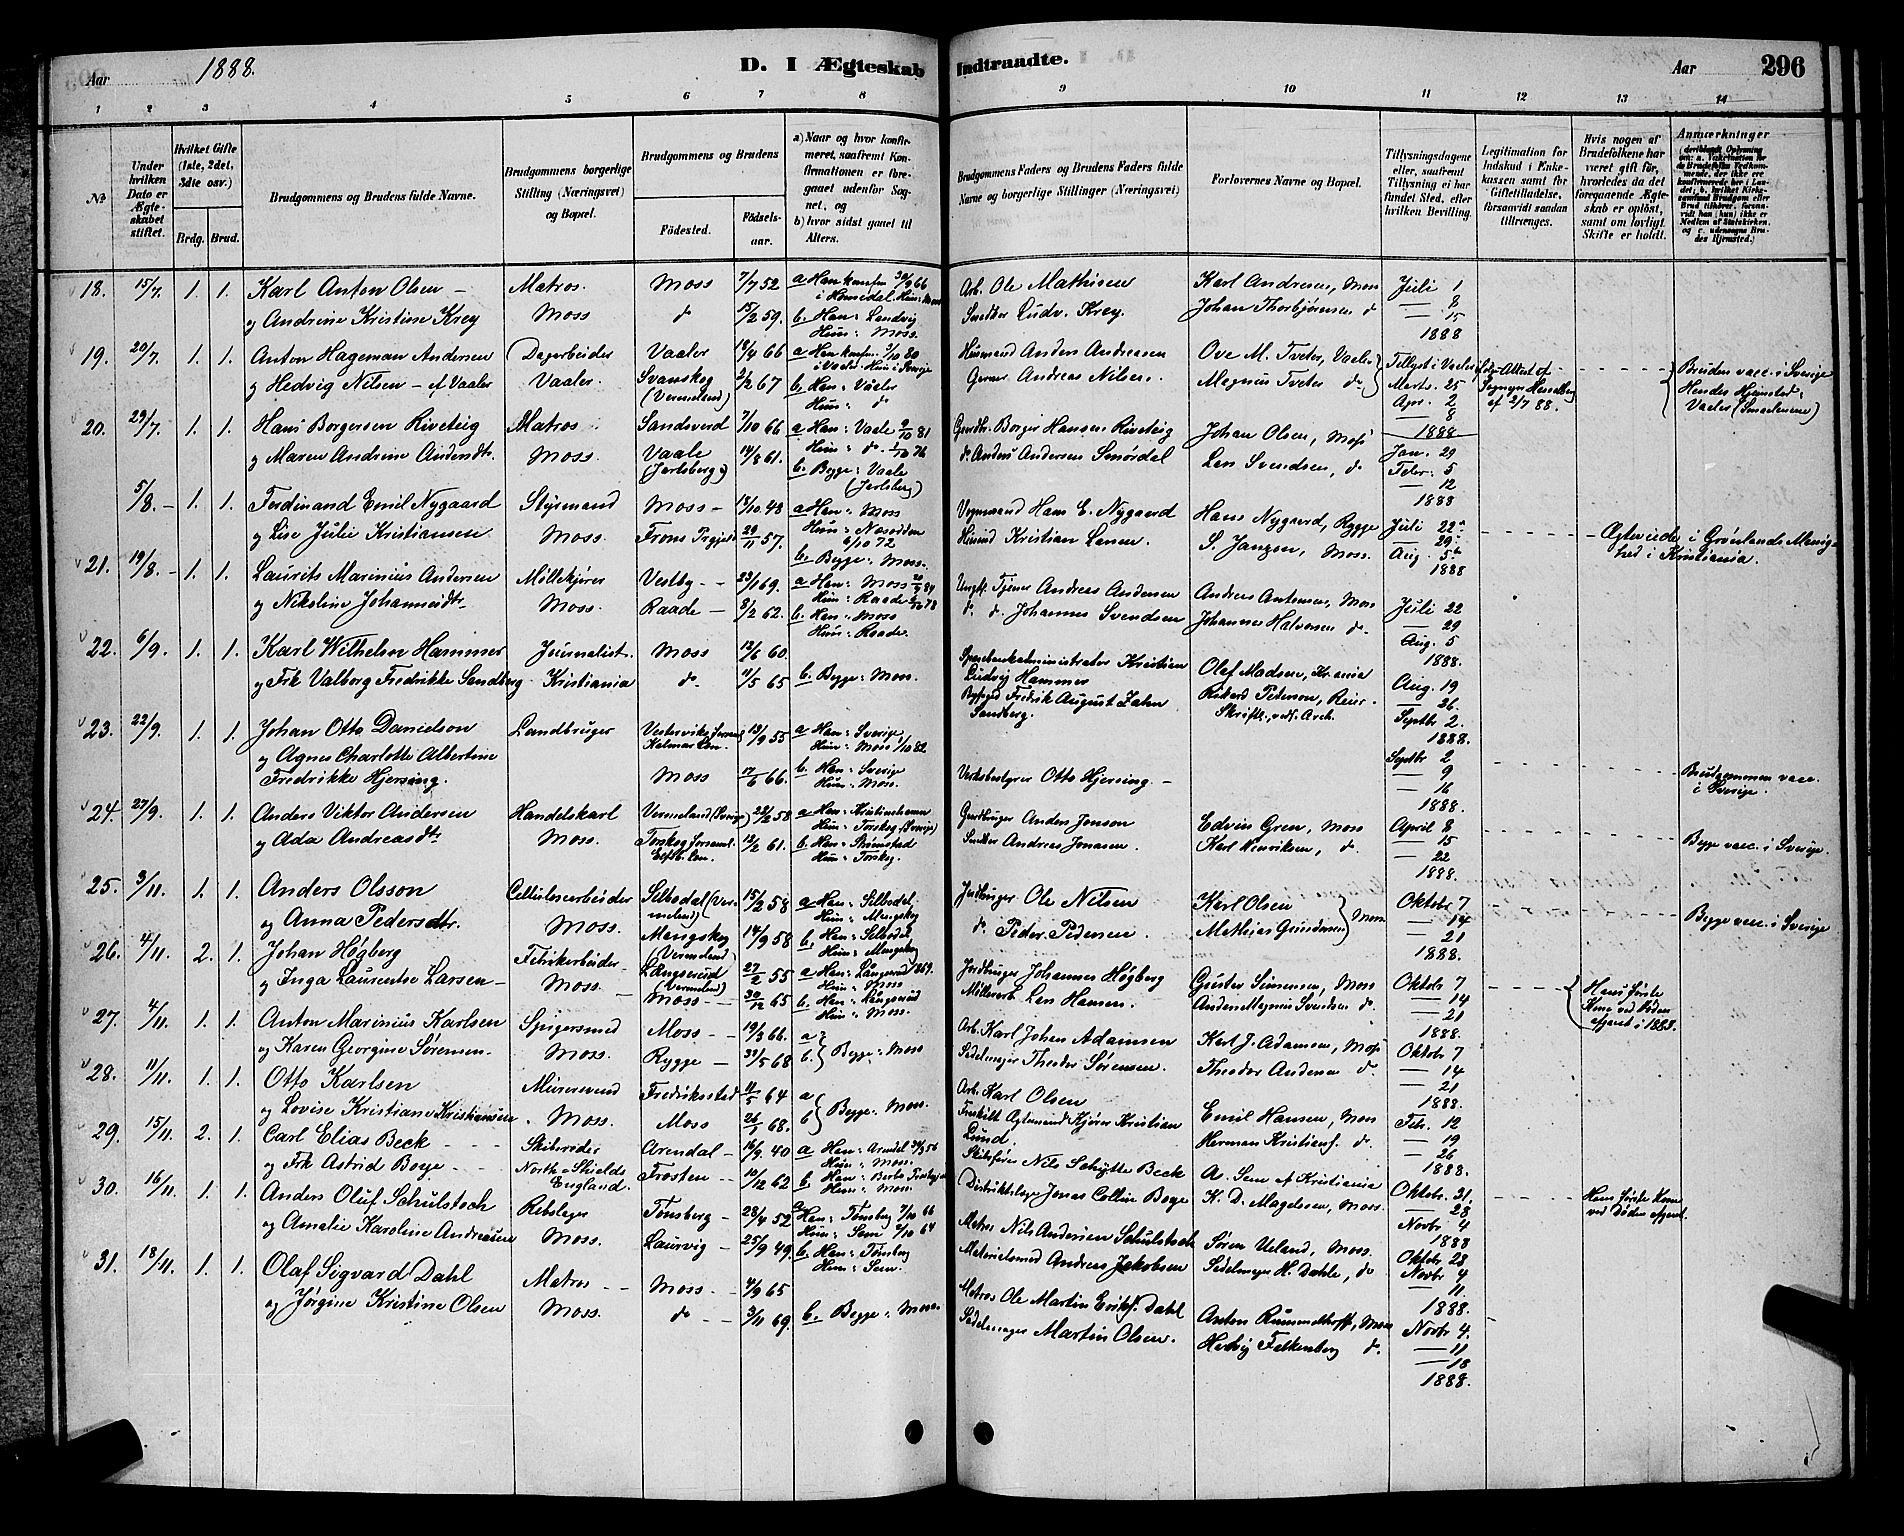 Aar 1888. D. I Ægteskab Indtraadte. Aar 296
1 2 3 4 5 6 7 8 9 10 11 12 13 14
No
Under hvilken Dato er Ægteskabet stiftet.
Hvilket Gifte (1ste, 2det, 3die osv.)
Brdg. Brud.
Brudgommens og Brudens fulde Navne.
Brudgommens borgerlige Stilling (Næringsvei) og Bopæl.
Brudgommens og Brudens
Fødested. Fødselsaar.
a) Naar og hvor konfirmeret, saafremt Konfirmationen er foregaaet udenfor Sognet, og
b) hvor sidst ganet til Alters.
Brudgommens Faders og Brudens Faders fulde Navne og borgerlige Stillinger (Næringsvei)
Forlovernes Navne og Bopæl.
Tillysningsdagene eller, saafremt Tillysning ei har fundet Sted, efter hvilken Bevilling.
Legitimation for Indskud i Enkekassen samt for Giftetilladelse, forsaavidt saadan tiltrænges.
Hvis nogen af Brudefolkene har været gift før, hvorledes da det foregaaende Ægteskab er opløst, samt om lovligt Skifte er holdt.
Anmærkninger
18. 15/7. 1. 1. Karl Anton Olsen – Matros. Moss 7/7 52 a Han konfm 30/9 66 Arb. Ole Mathisen Karl Andresen, Moss Juli 1
i Homedal. Hun: Moss — 8
og Andrine Kristine Krey Moss do 15/2 59. b. Han: Landvig Smedkr Ludv. Krey. Johan Thorbjørnsen do — 15
Hun: Moss. 1888
19. 20/7. 1. 1. Anton Hageman Andersen Dagarbeider Vaaler 18/4 66 a Han konfm. 3/10 80 Husmand Anders Andreasen Ove M. Tveter, Vaaler Tillyst i Vaaler Bruden vacc. i Sverige
i Vaaler Hun i Sverige
og Hedvig Nilsen – af Vaaler Vaaler. Svanskog (Vermeland) 2/2 67 b. Han: Vaaler Andreas Nilsen. Magnus Tveter do Marts. 25 af 2/7 88. Hendes Hjemsted: Vaaler (Smaalenene)
Hun: do Apr. 2
— 8
1888
20. 29/7. 1. 1. Hans Borgersen Riveteig Matros Sandsverd 7/10 66 a Han: Vaale 9/10 81 Borger Hansen Riveteig Johan Olsen, Moss Jan. 29
Hun: do. 1/10 76
og Maren Andrine Andersdtr. Moss. Vaale (Jarlsberg) 14/8 61. b. Begge: Vaale (Jarlsberg) do Anders Andersen Smørdal Lars Svendsen, do Febr. 5
— 12
1888
5/8. – 1. 1. Ferdinand Emil Nygaard Styrmand Moss – 18/10 48 a Han: Moss Vognmand Hans E. Nygaard Hans Nygaard, Rygge Juli 22 Ægteviede i Grønlands Menighed i Kristiania.
Hun: Nesodden 6/10 72 — 29
og Lise Julie Kristiansen Moss. 29/11 57. b. Begge: Moss. Husmd Kristian Larsen S. Janzen, Moss. Aug. 5
1888
21. 19/8. – 1. 1. Laurits Marinius Andersen Møllekjører Vestby – – 23/1 69. a Han: Moss 84 Ungk. Tjener Andreas Andersen Andreas Antonsen, Moss Juli 22
Hun: Raade 78
og Nikoline Johannesdtr. Moss. Raade – 8/2 62. b. Han: Moss do. do. Johannes Svendsen Johannes Halvorsen do. — 29
Hun: Raade. Aug. 5
1888.
22. 6/9. 1. 1. Karl Wilhelm Hammer Journalist. Moss 12/6 60. Sparebankadministrator Kristian Ludvig Hammer Olaf Madsen, Kr.ania Aug. 19
og Frk Valborg Fredrikke Sandberg Kristiania do. 11/5 65 b. Begge: Moss. Byfoged Fredrik August Zahn Sandberg. Rikard Petersen, Reier — 26
Septbr 2.
1888.
23. 22/9. 1. 1. Johan Otto Danielson Landbruger Kalmar Len. 13/9 55 a Han: Sverige Septbr 2
Hun: Moss 1/10 82
og Agnes Charlotte Albertine b. Han: Sverige — 9
Fredrikke Hjersing. Moss 17/6 66. Hun: Moss. Verksbestyrer Otto Hjersing – — 16 Brudgommen vacc. i Sverige.
1888.
24. 27/9. 1. 1. Anders Viktor Andersen Handelskarl Vermeland (Sverige) 22/2 58 a Han: Kristinehamn Gaardbruger Anders Jonson Edvin Gren, Moss April 8
Hun: Torskog (Sverige)
og Ada Andreasdtr Moss. Torskog 12/2 61. b. Han: Strømstad Andreas Jonasen. Karl Henriksen, do. — 15 Begge vacc. i Sverige.
Hun: Torskog. — 22
1888.
25. 3/11. 1. 1. Anders Olsson Cellulosearbeider Silbodal (Vermeland) 15/2 58 a Han: Silbodal Jordbruger Ole Nilsen Karl Olsen Moss Oktobr 7
Hun: Mangskog
og Anna Pedersdtr. Moss. Mangskog (Vermeland) 14/9 58 b. Han: Silbodal do. Peder Pedersen. Mathias Gundersen — 14 Begge vacc. i Sverige
Hun: Mangskog — 21
1888.
26. 4/11. 2. 1. Johan Högberg Fabrikarbeider – Långserud (Vermeland) 27/2 55 a Han: Långserud 1869. Jordbruger Johannes Högberg Gustav Simensen, Moss Oktobr 7 Hans første Kone ved Døden afgaaet i 1888.
Hun: Moss
og Inga Laurentse Larsen – Moss – Moss – – 30/12 65 b. Han: Långserud Møllerarb. Lars Hansen. Anders Magnus Svendsen do. — 14
Hun: Moss. — 21
1888.
27. 4/11. 1. 1. Anton Marinius Karlsen Spigersmed Moss – – 19/3 66. a Arb. Karl Johan Adamsen Karl J. Adamsen, Moss Oktobr 7
og Karen Georgine Sørensen. Moss. Rygge – 31/5 68 b. Begge: Moss Sadelmager Theodor Sørensen. Theodor Andersen do. — 14
— 21
1888.
28. 11/11. 1. 1. Otto Karlsen Murersvend Fredriksstad 11/5 64 a Arb. Karl Olsen Emil Hansen, Moss Febr. 12
og Lovise Kristiane Kristiansen Moss. Moss 26/1 68. b Begge: Moss. Fraskilt Agtemand Kjører Kristian Lund. Herman Kristians. do. — 19
— 26
1888.
29. 15/11. 2. 1. Carl Elias Beck – – Skibsreder Arendal – 16/9 40 a Han: Arendal 30/3 56 Skibsfører Nils Schytte Beck A. Sem af Kristiania Oktobr. 21. Hans første Kone ved Døden afgaaet.
Hun: Moss.
og Frk Astrid Boye – – North-Shields England. Frosten – – 10/12 62 b. Han: Distriktslæge Jonas Collin Boye K. D. Magelssen, Moss. — 28
Hun: Moss. Novbr 4
1888
30. 16/11. 1. 1. Anders Oluf Schulstoch Rebslager Tønsberg – 28/4 52 a Han: Tønsberg 7/10 66 Matros Nils Andersen Schulstoch Søren Ueland, Moss. Oktobr 28
Hun: Sem 2/10 64
og Amalie Karoline Andreasen Moss. Laurvig – 25/9 49. b. Han: Tønsberg Materialsmed Andreas Jakobsen Sadelmager H. Dahle, do Novbr 4
Hun: Sem. — 11
1888.
31. 18/11. 1. 1. Olaf Sigvard Dahl Matros – – Moss – – 4/9 65 Matros Ole Martin Eriks. Dahl Anton Rummelhoff, Moss Novbr 4.
og Jørgine Kristine Olsen Moss. do – – 3/11 69. b. Begge: Moss. Sadelmager Martin Olsen. Hedvig Falkenberg do. — 11
— 18
1888.